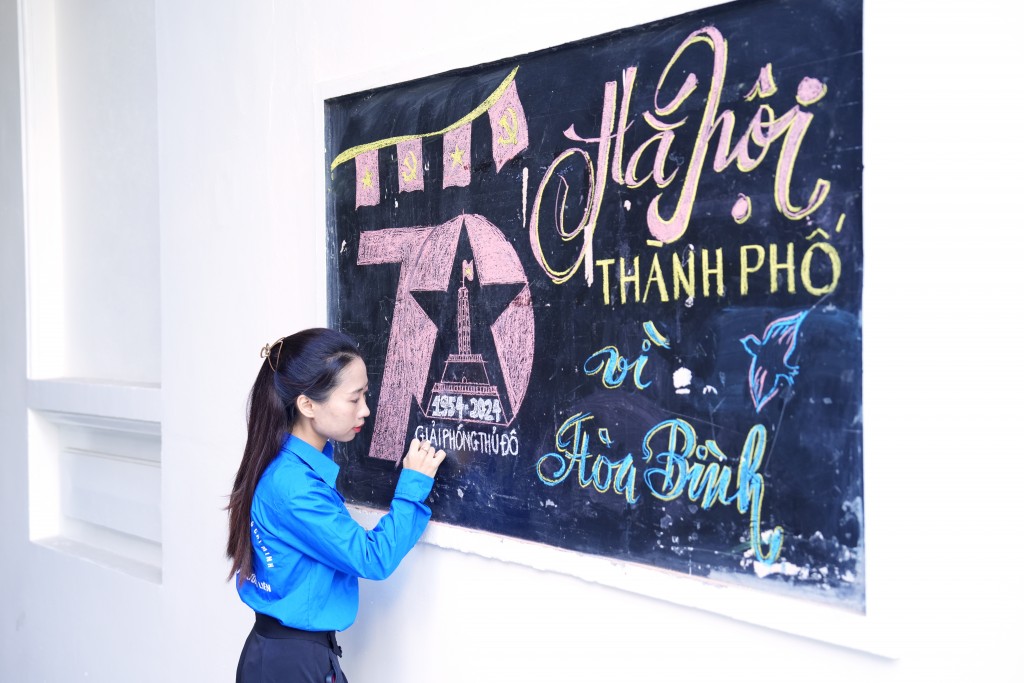 70
1954-2024
GIẢI PHÓNG THỦ ĐÔ
Hà Nội
THÀNH PHỐ
vì
Hòa Bình